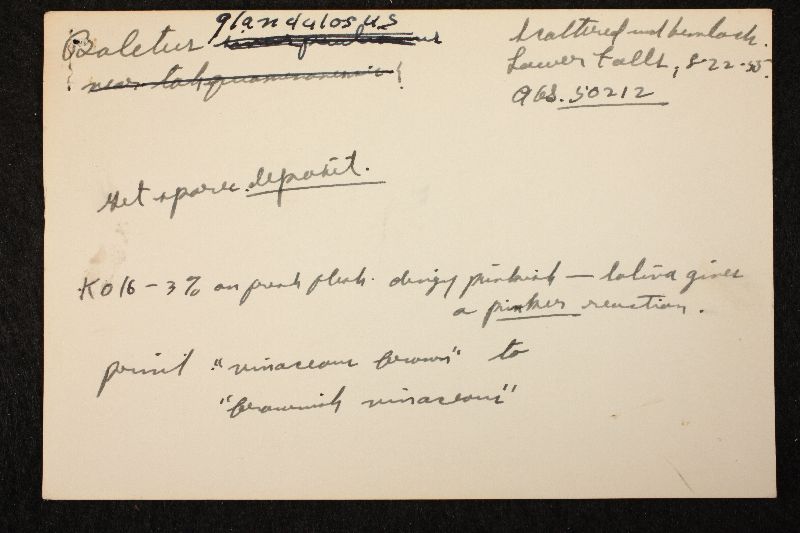 Boletus glandulosus
near tahquamenonensis
Scattered und hemlock.
Lower Falls, 8-22-55.
AHS. 50212
Get spore deposit.
KOH - 3% on fresh flesh dingy pinkish — saliva gives
a pinker reaction.
print "vinaceous brown" to
"brownish vinaceous"